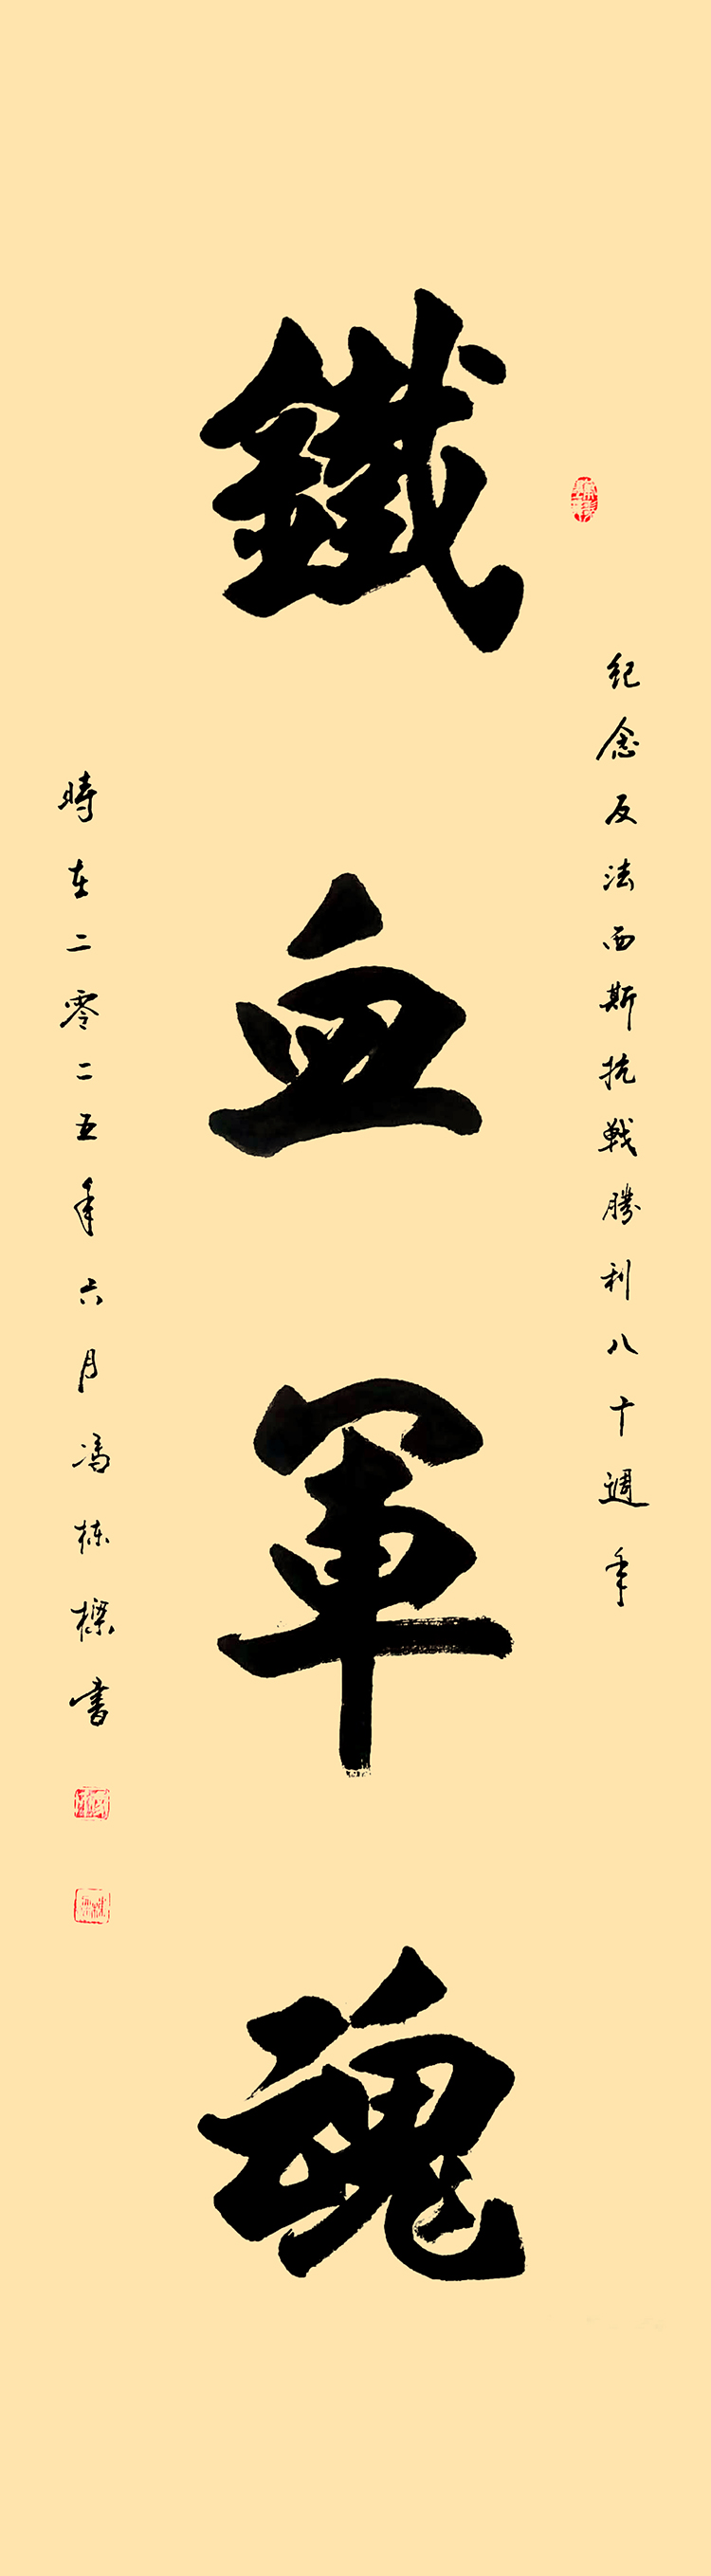 紀念反法西斯抗戰勝利八十週年
鐵血軍魂
時在二零二五年六月馮栋樑書